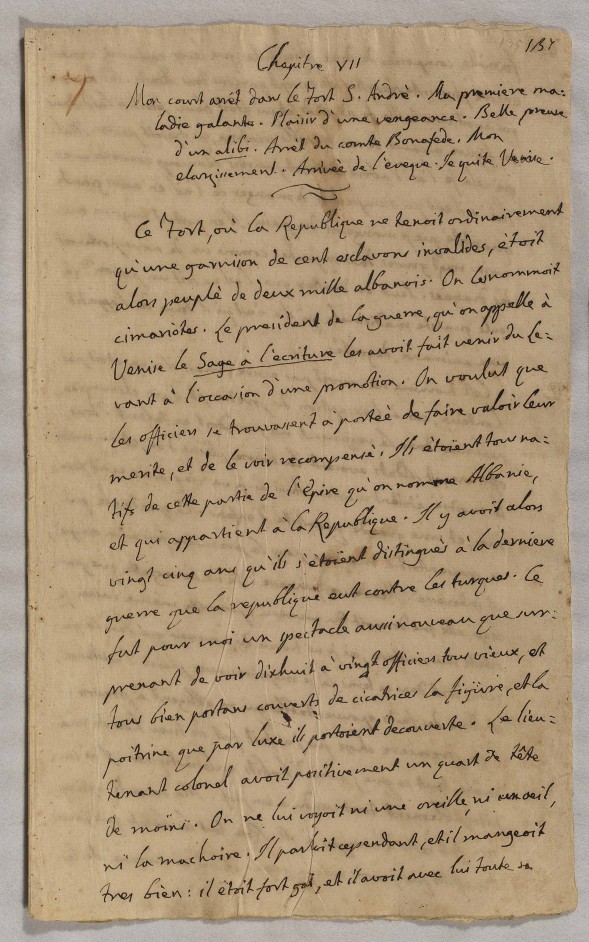 137
Chapitre VII
Mon court arrêt dans le Fort S. André. Ma premiere ma=
ladie galante. Plaisir d'une vengeance. Belle preuve
d'un alibi. Arrêt du comte Bonafede. Mon
elargissement. Arrivée de l'eveque. Je quite Venise.
Ce Fort, où la Republique ne tenoit ordinairement
qu'une garnison de cent esclavons invalides, étoit
alors peuplé de deux mille albanois. On les nommoit
cimariôtes. Le president de la guerre, qu'on appelle à
Venise le Sage à l'écriture les avoit fait venir du Le=
vant à l'occasion d'une promotion. On voulut que
les officiers se trouvassent à portée de faire valoir leur
merite, et de le voir recompensé. Ils étoient tous na=
tifs de cette partie de l'Epire qu'on nomme Albanie,
et qui appartient à la Republique. Il y avoit alors
vingt cinq ans qu'ils s'étoient distingués à la derniere
guerre que la republique eut contre les turques. Ce
fut pour moi un spectacle aussi nouveau que sur=
prenant de voir dixhuit à vingt officiers tous vieux, et
tous bien portans couverts de cicatrices la figure, et la
poitrine que par luxe ils portoient decouverte. Le lieu=
tenant colonel avoit positivement un quart de tête
de moins. On ne lui voyoit ni une oreille, ni un oeil,
ni la machoire. Il parloit cependant, et il mangeoit
tres bien: il étoit fort gai, et il avoit avec lui toute sa